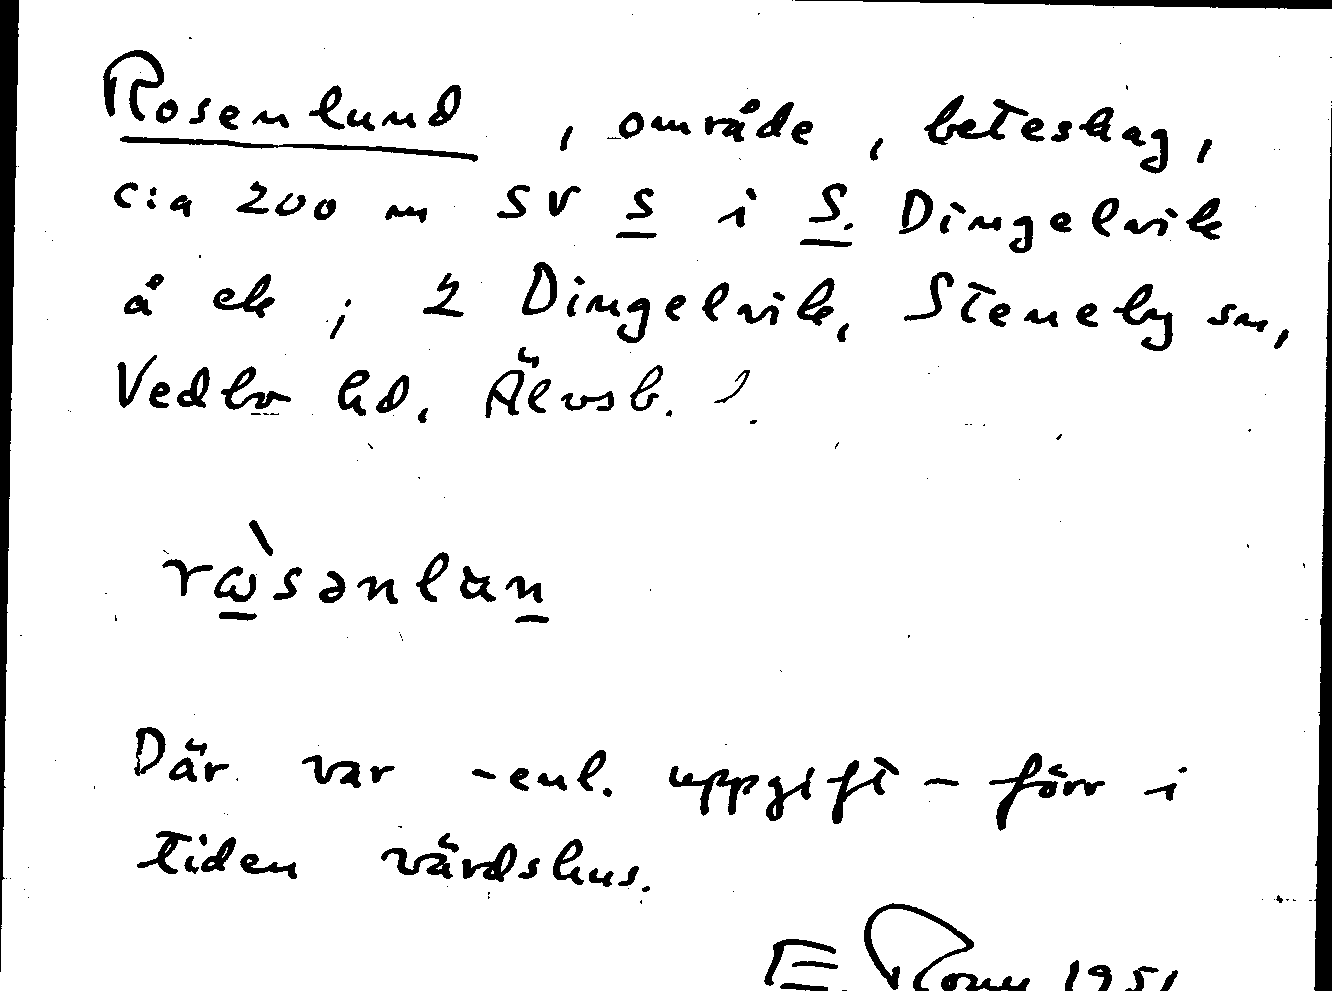 Rosenlund, område, beteshag,
c:a 200 m SV S i S. Dingelvik
å ek; 2 Dingelvik, Steneby sn,
Vedbo hd. Älvsb. l.
rɷ̀sənlun
Där var - enl. uppgift - förr i
tiden värdshus.
E. 1951